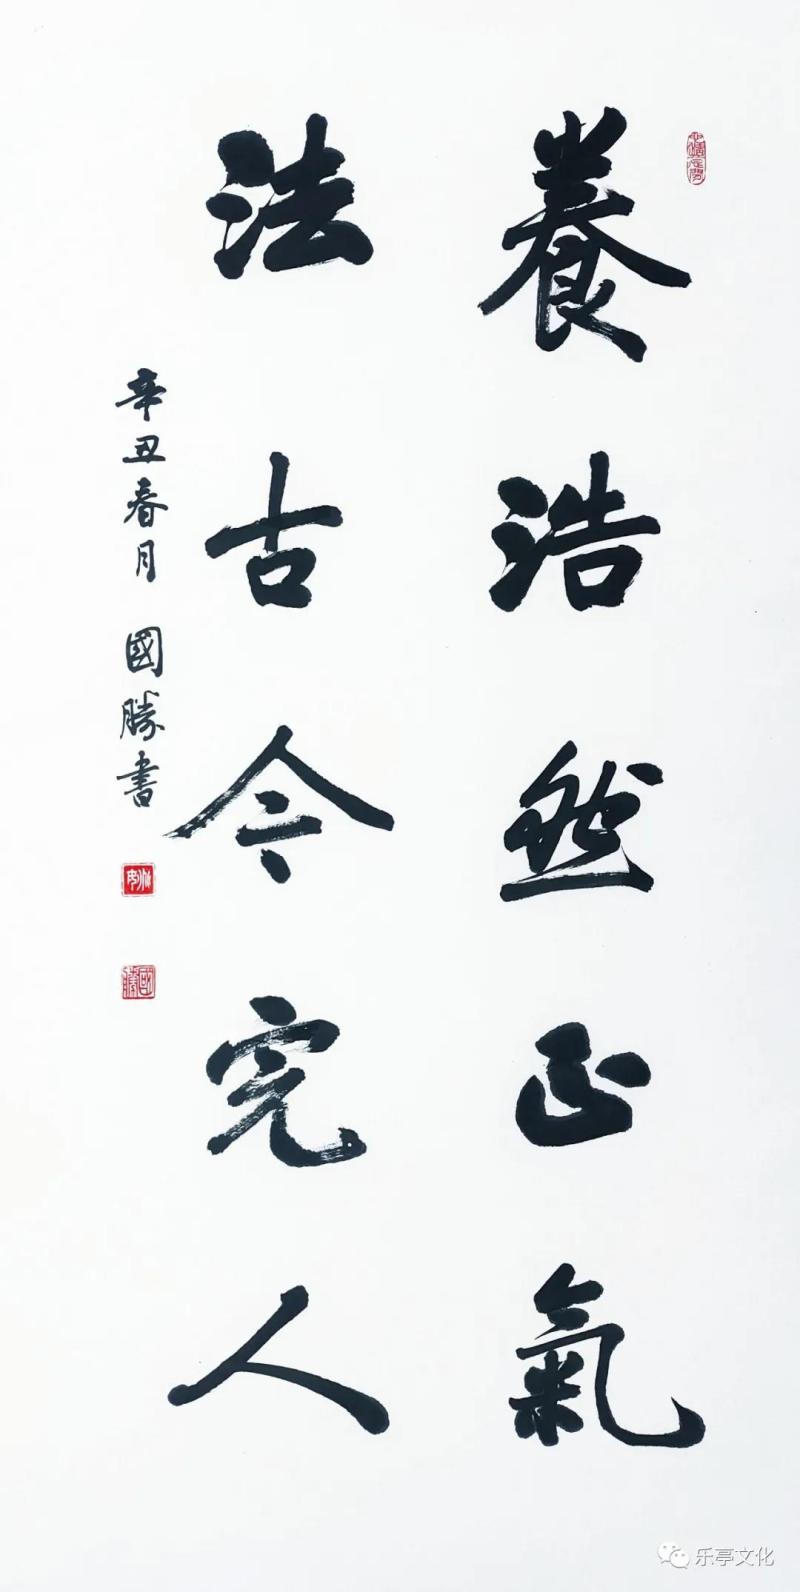 養浩然正氣
法古今完人
辛丑春月 國勝書
國勝
乐亭文化